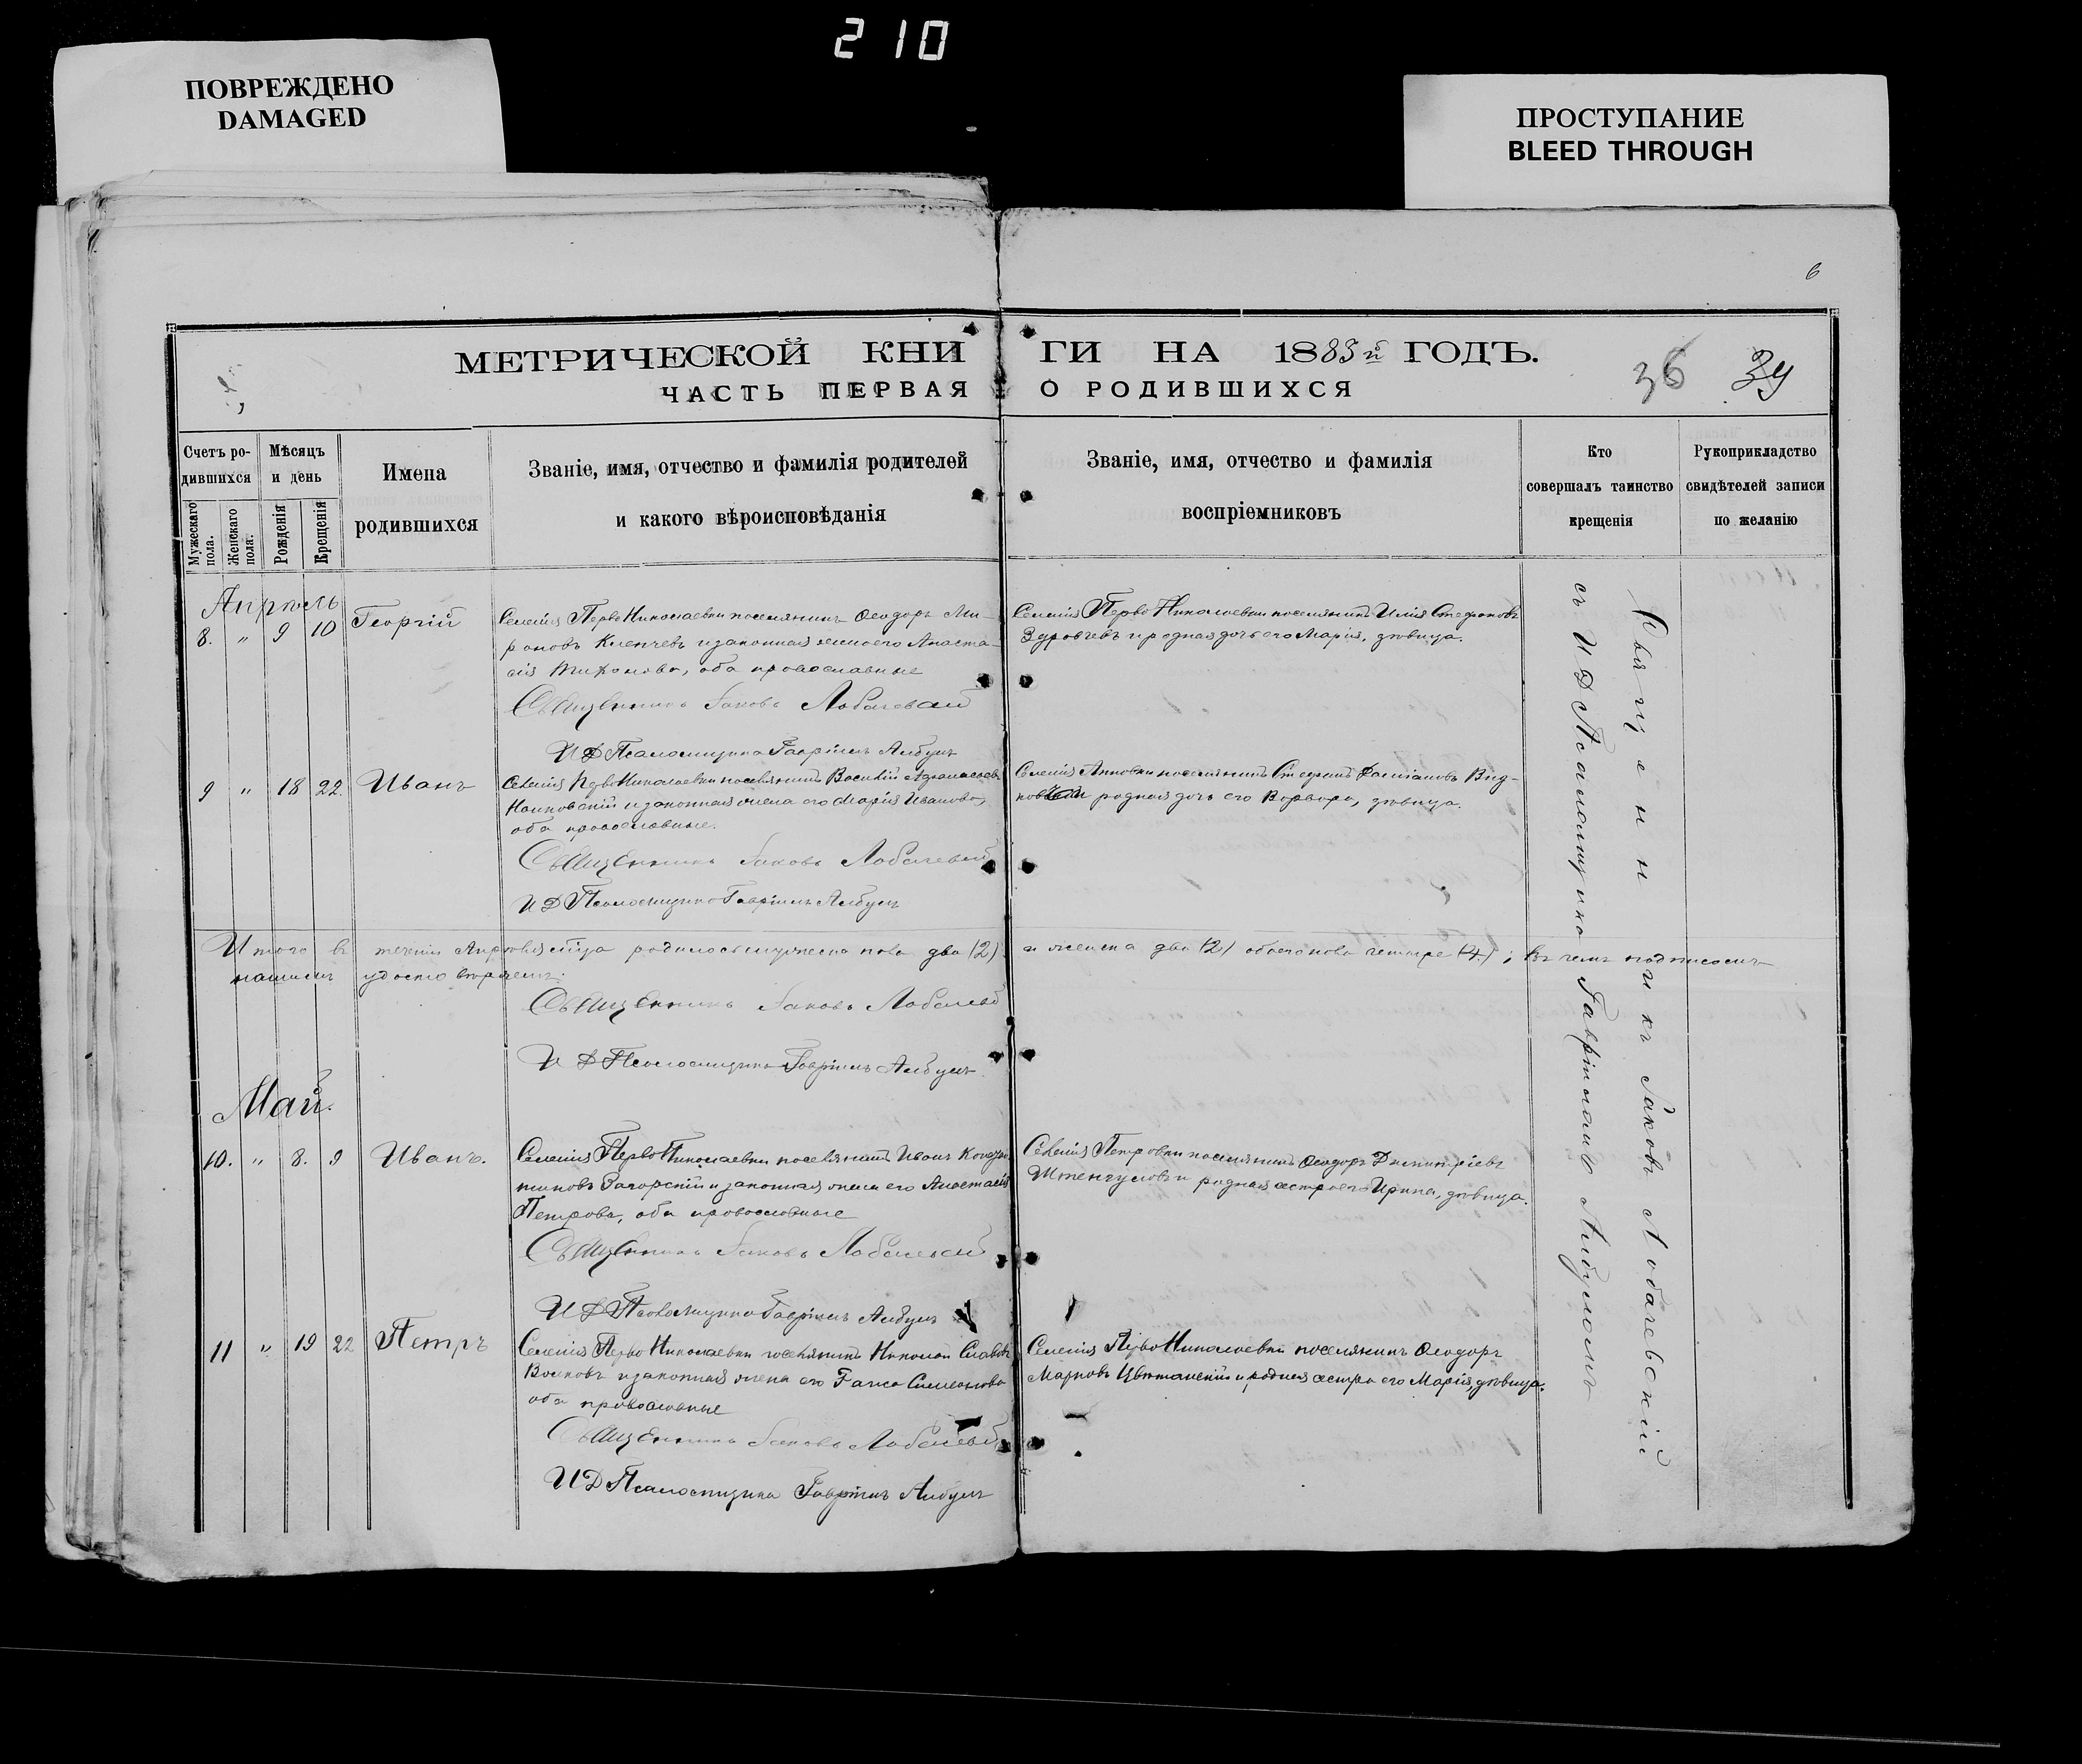 210
ПОВРЕЖДЕНО
DAMAGED
ПРОСТУПАНИЕ
BLEED THROUGH
6
МЕТРИЧЕСКОЙ КНИГИ НА 1885й ГОДЪ.
36 39
ЧАСТЬ ПЕРВАЯ О РОДИВШИХСЯ
Счетъ родившихся
Мужескаго пола.
Женскаго пола.
Мѣсяцъ и день
Рожденія
Крещенія
Имена родившихся
Званіе, имя, отчество и фамилія родителей
и какого вѣроисповѣданія
Званіе, имя, отчество и фамилія
воспріемниковъ
Кто
совершалъ таинство
крещенія
Рукоприкладство
свидѣтелей записи
по желанію
Апрѣль
8. " 9 10 Георгій
Селенія Перво Николаевки поселянинъ Ѳеодоръ Ми-
роновъ и законная жена его Анаста-
сія Тихонова, оба православные
Священникъ Іаковъ Лобачевскій
И Д Псаломщика Гавріилъ Албулъ
Селенія Перво Николаевки поселянинъ Илія Стефановъ
и родная дочь его Марія, дѣвица.
9 " 18 22. Иванъ
Селенія Перво Николаевки поселянинъ Василій
и законная жена его Марія Иванова,
оба православные.
Священникъ Іаковъ Лобачевскій
И Д Псаломщика Гавріилъ Албулъ
Селенія Анновки поселянинъ Стефанъ Даміановъ
и родная дочь его Варвара, дѣвица.
Итого въ теченіи Апрѣля м-ца родилось мужеска пола два (2) а женска два (2) обоего пола четыре (4); въ чемъ подписомъ
нашимъ удостовѣряемъ.
Священникъ Іаковъ Лобачевскій
И Д Псаломщика Гавріилъ Албулъ
Май.
10. " 8. 9 Иванъ.
Селенія Перво Николаевки поселянинъ Иванъ Констан-
тиновъ Загорскій и законная жена его Анастасія
Петрова, оба православные
Священникъ Іаковъ Лобачевскій
И Д Псаломщика Гавріилъ Албулъ
Селенія Петровки поселянинъ Ѳеодоръ Димитріевъ
и родная сестра его Ирина, дѣвица.
11 " 19 22 Петръ
Селенія Перво Николаевки поселянинъ Николай
и законная жена его Симеонова
оба православные
Священникъ Іаковъ Лобачевскій
И Д Псаломщика Гавріилъ Албулъ
Селенія Перво Николаевки поселянинъ Ѳеодоръ
Марковъ и родная сестра его Марія, дѣвица.
Священникъ Іаковъ Лобачевскій
съ И Д Псаломщика Гавріиломъ Албуломъ